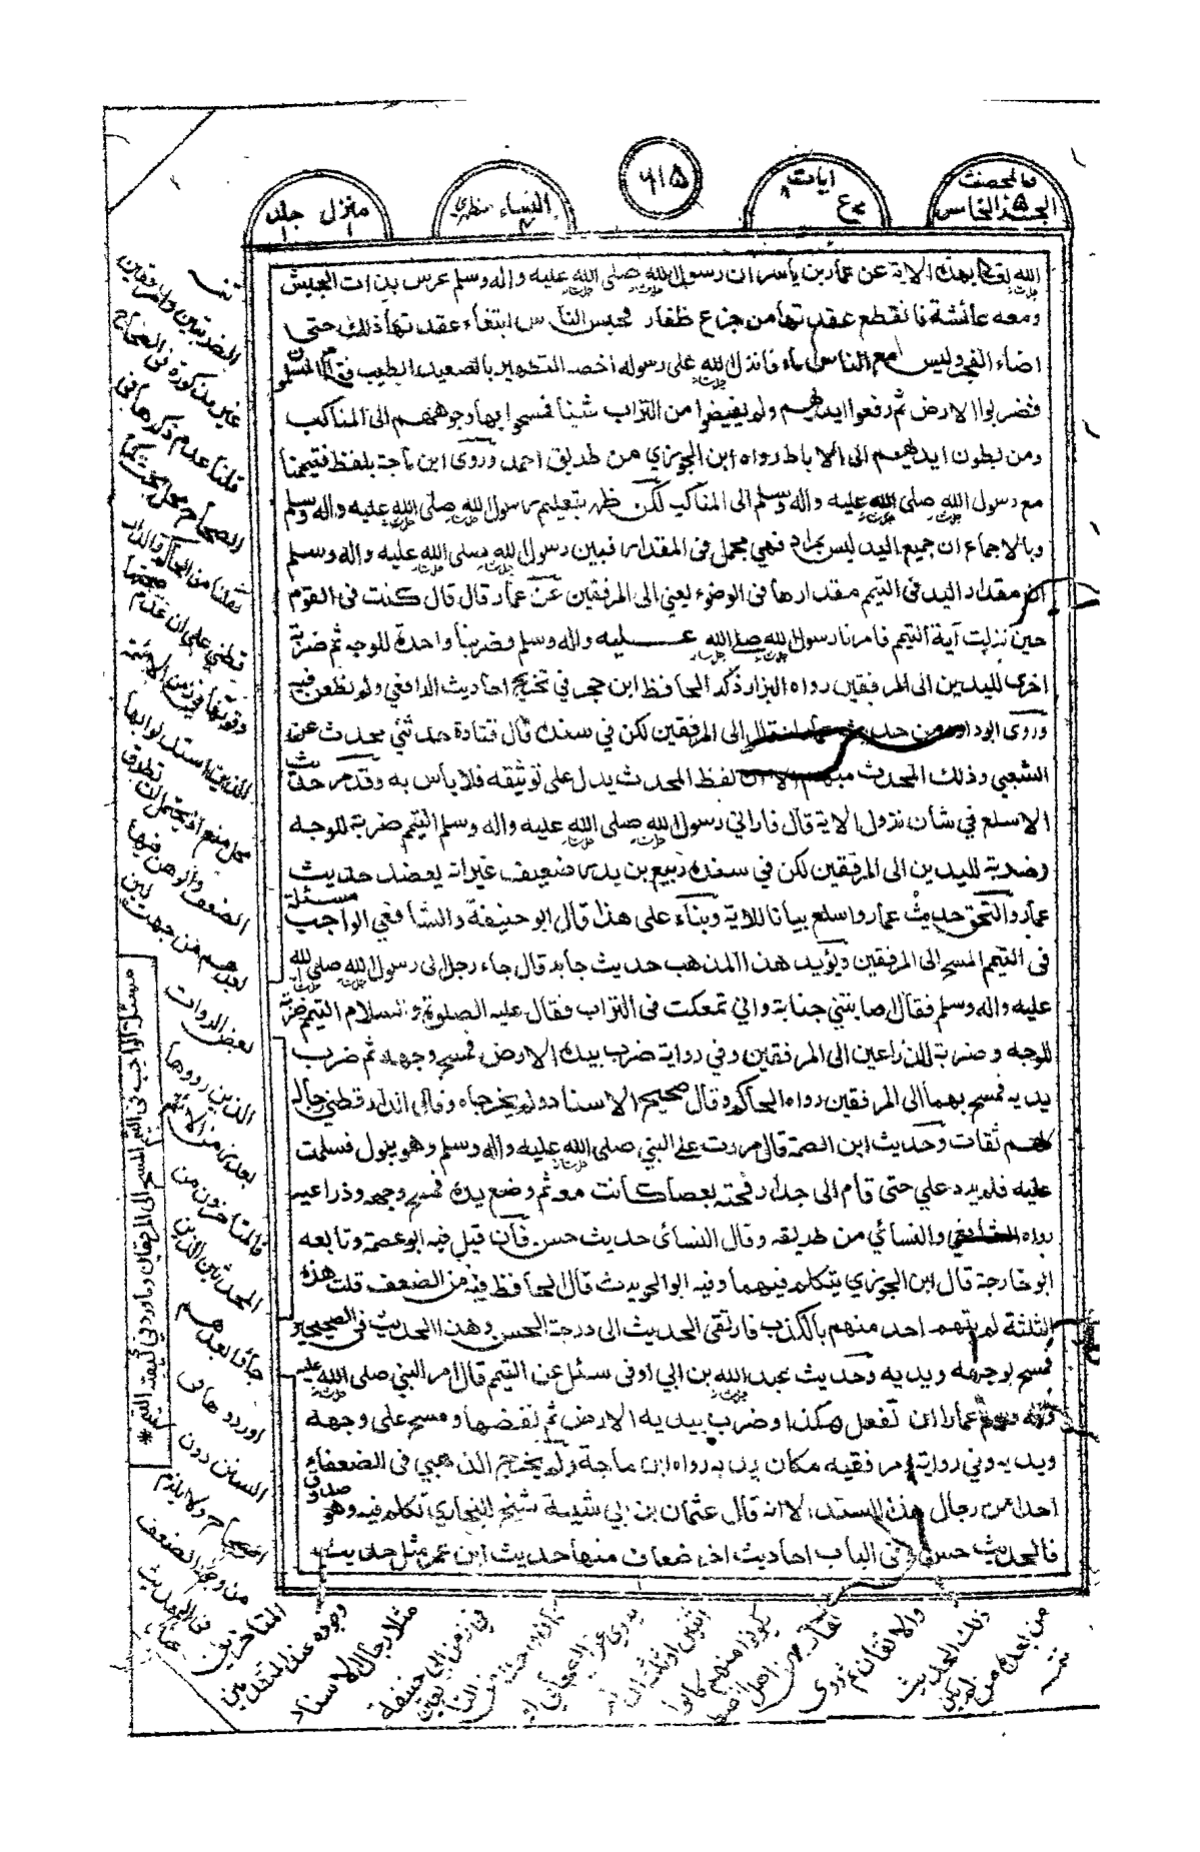 والمحصنت
الجزء الخامس
٥
ايات
ع
٦١٥
النساء مظهري
٤
منزل جلد
١ ١
الله لقائها بهذه الاية عن عمار بن ياسر ان رسول الله صلى الله عليه واله وسلم عرس بذات الجيش
ومعه عائشة فانقطع عقد لها من جزع ظفار فحبس الناس ابتغاء عقدتها ذلك حتى
اضاء الفجر وليس مع الناس ماء فانزل الله على رسوله رخصة التطهير بالصعيد الطيب فقام المسلمون
فضربوا الارض ثم رفعوا ايديهم ولم يقبضوا من التراب شيئا فمسحوا بها وجوههم الى المناكب
ومن بطون ايديهم الى الاباط رواه ابن الجوزي من طريق احمد وروى ابن ماجة بلفظ فتيممنا
مع رسول الله صلى الله عليه واله وسلم الى المناكب لكن ظهر بتعليم رسول الله صلى الله عليه واله وسلم
وبالاجماع ان جميع اليد ليس بمراد فهي مجمل في المقدار فبين رسول الله صلى الله عليه واله وسلم
ان مقدار اليد في التيمم مقدارها في الوضوء يعني الى المرفقين عن عمار قال قال كنت في القوم
حين نزلت آية التيمم فامرنا رسول الله صلى الله عليه واله وسلم فضربنا واحدة للوجه ثم ضربة
اخرى لليدين الى المرفقين رواه البزار ذكر الحافظ ابن حجر في تخريج احاديث الرافعي ولم يطعن فيه
وروى ابوداود من حديث عمار انه قال الى المرفقين لكن في سنده قال قتادة حدثني محدث عن
الشعبي وذلك المحدث مبهم الا ان لفظ المحدث يدل على توثيقه فلا بأس به وقد مر حديث
الاسلع في شان نزول الاية قال فاراني رسول الله صلى الله عليه واله وسلم التيمم ضربة للوجه
وضربة لليدين الى المرفقين لكن في سنده ربيع بن بدر ضعيف غير انه يعضد حديث
عمار والتحق حديث عمار واسلع بيانا للاية وبناء على هذا قال ابو حنيفة والشافعي الواجب مسئلة
في التيمم المسح الى المرفقين ويؤيد هذا المذهب حديث جابر قال جاء رجل الى رسول الله صلى الله
عليه واله وسلم فقال اصابتني جنابة واني تمعكت في التراب فقال عليه الصلوة والسلام التيمم ضربة
للوجه وضربة للذراعين الى المرفقين وفي رواية ضرب بيده الارض فمسح وجهه ثم ضرب
يديه فمسح بهما الى المرفقين رواه الحاكم وقال صحيح الاسناد ولم يخرجاه وقال الدارقطني رجاله
كلهم ثقات وحديث ابن الصمة قال مررت على النبي صلى الله عليه واله وسلم وهو يبول فسلمت
عليه فلم يرد علي حتى قام الى جدار فحته بعصا كانت معه ثم وضع يده فمسح وجهه وذراعيه
رواه الشافعي والنسائي من طريقه وقال النسائى حديث حسن فان قيل فيه ابو عصمة وتابعه
ابو خارجة قال ابن الجوزي يتكلم فيهما وفيه ابو الحويرث قال الحافظ فيه من الضعف قلت هذه
الثلثة لم يتهم احد منهم بالكذب فارتقى الحديث الى درجة الحسن وهذا الحديث في الصحيحين
فمسح بوجهه ويديه وحديث عبد الله بن ابي اوفى سئل عن التيمم قال امر النبي صلى الله عليه
واله وسلم عمارا ان تفعل هكذا وضرب بيديه الارض ثم نفضها ومسح على وجهه
ويديه وفي رواية مرفقيه مكان يديه رواه ابن ماجة ولم يخرج الذهبي في الضعفاء
احدا من رجال هذا السند الا انه قال عثمان بن ابي شيبة شيخ البخاري تكلم فيه وهو صدوق
فالحديث حسن وفي الباب احاديث اخر ضعاف منها حديث ابن عمر مثل حديث
مسئلة الواجب في التيمم المسح الى المرفقين وما ورد في كيفية التيمم
الضربتين والمرفقين
غير مذكورة في الصحاح
قلنا عدم ذكرها في
الصحاح
نقلنا من الحاكم والدار
قطني على ان عدم صحتها
وقوتها في زمن الائمة
الذين استدلوا بها
محل منع اذ يحتمل ان تطرق
الضعف والوهن فيها
بعدهم من جهت لين
بعض الروات
الذين رووها
بعد زمن الائمة
فالمتاخرون من
المحدثين الذين
جاؤا بعدهم
اوردوها في
السنن دون
الصحاح ولا يلزم
من وجود الضعف
في الحديث
المتاخرين
وجوده عند المتقدمين
مثلا رجال الاسناد
في زمن ابي حنيفة
والاتقان ثم روى
ذلك الحديث
من بعده من لم يكن